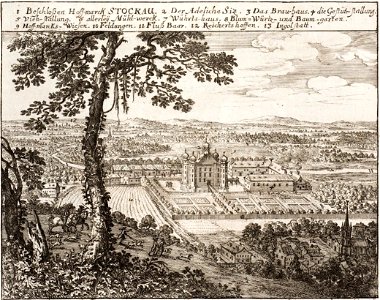 1 Beschloßen Hoffmarck STOCKAU. 2 Der Adeliche Siz. 3 Das Brauhaus. 4 die Gestüt-stallung.
5 Vich-Stallung. 6 allerley Mühl-werck. 7 Würths-haus. 8 Blum- Würtz- und Baum-garten.
9 Hoffmarcks-Wiesen. 10 Feldungen. 11 Fluß Baar. 12 Reichertshoffen. 13 Ingolstatt.